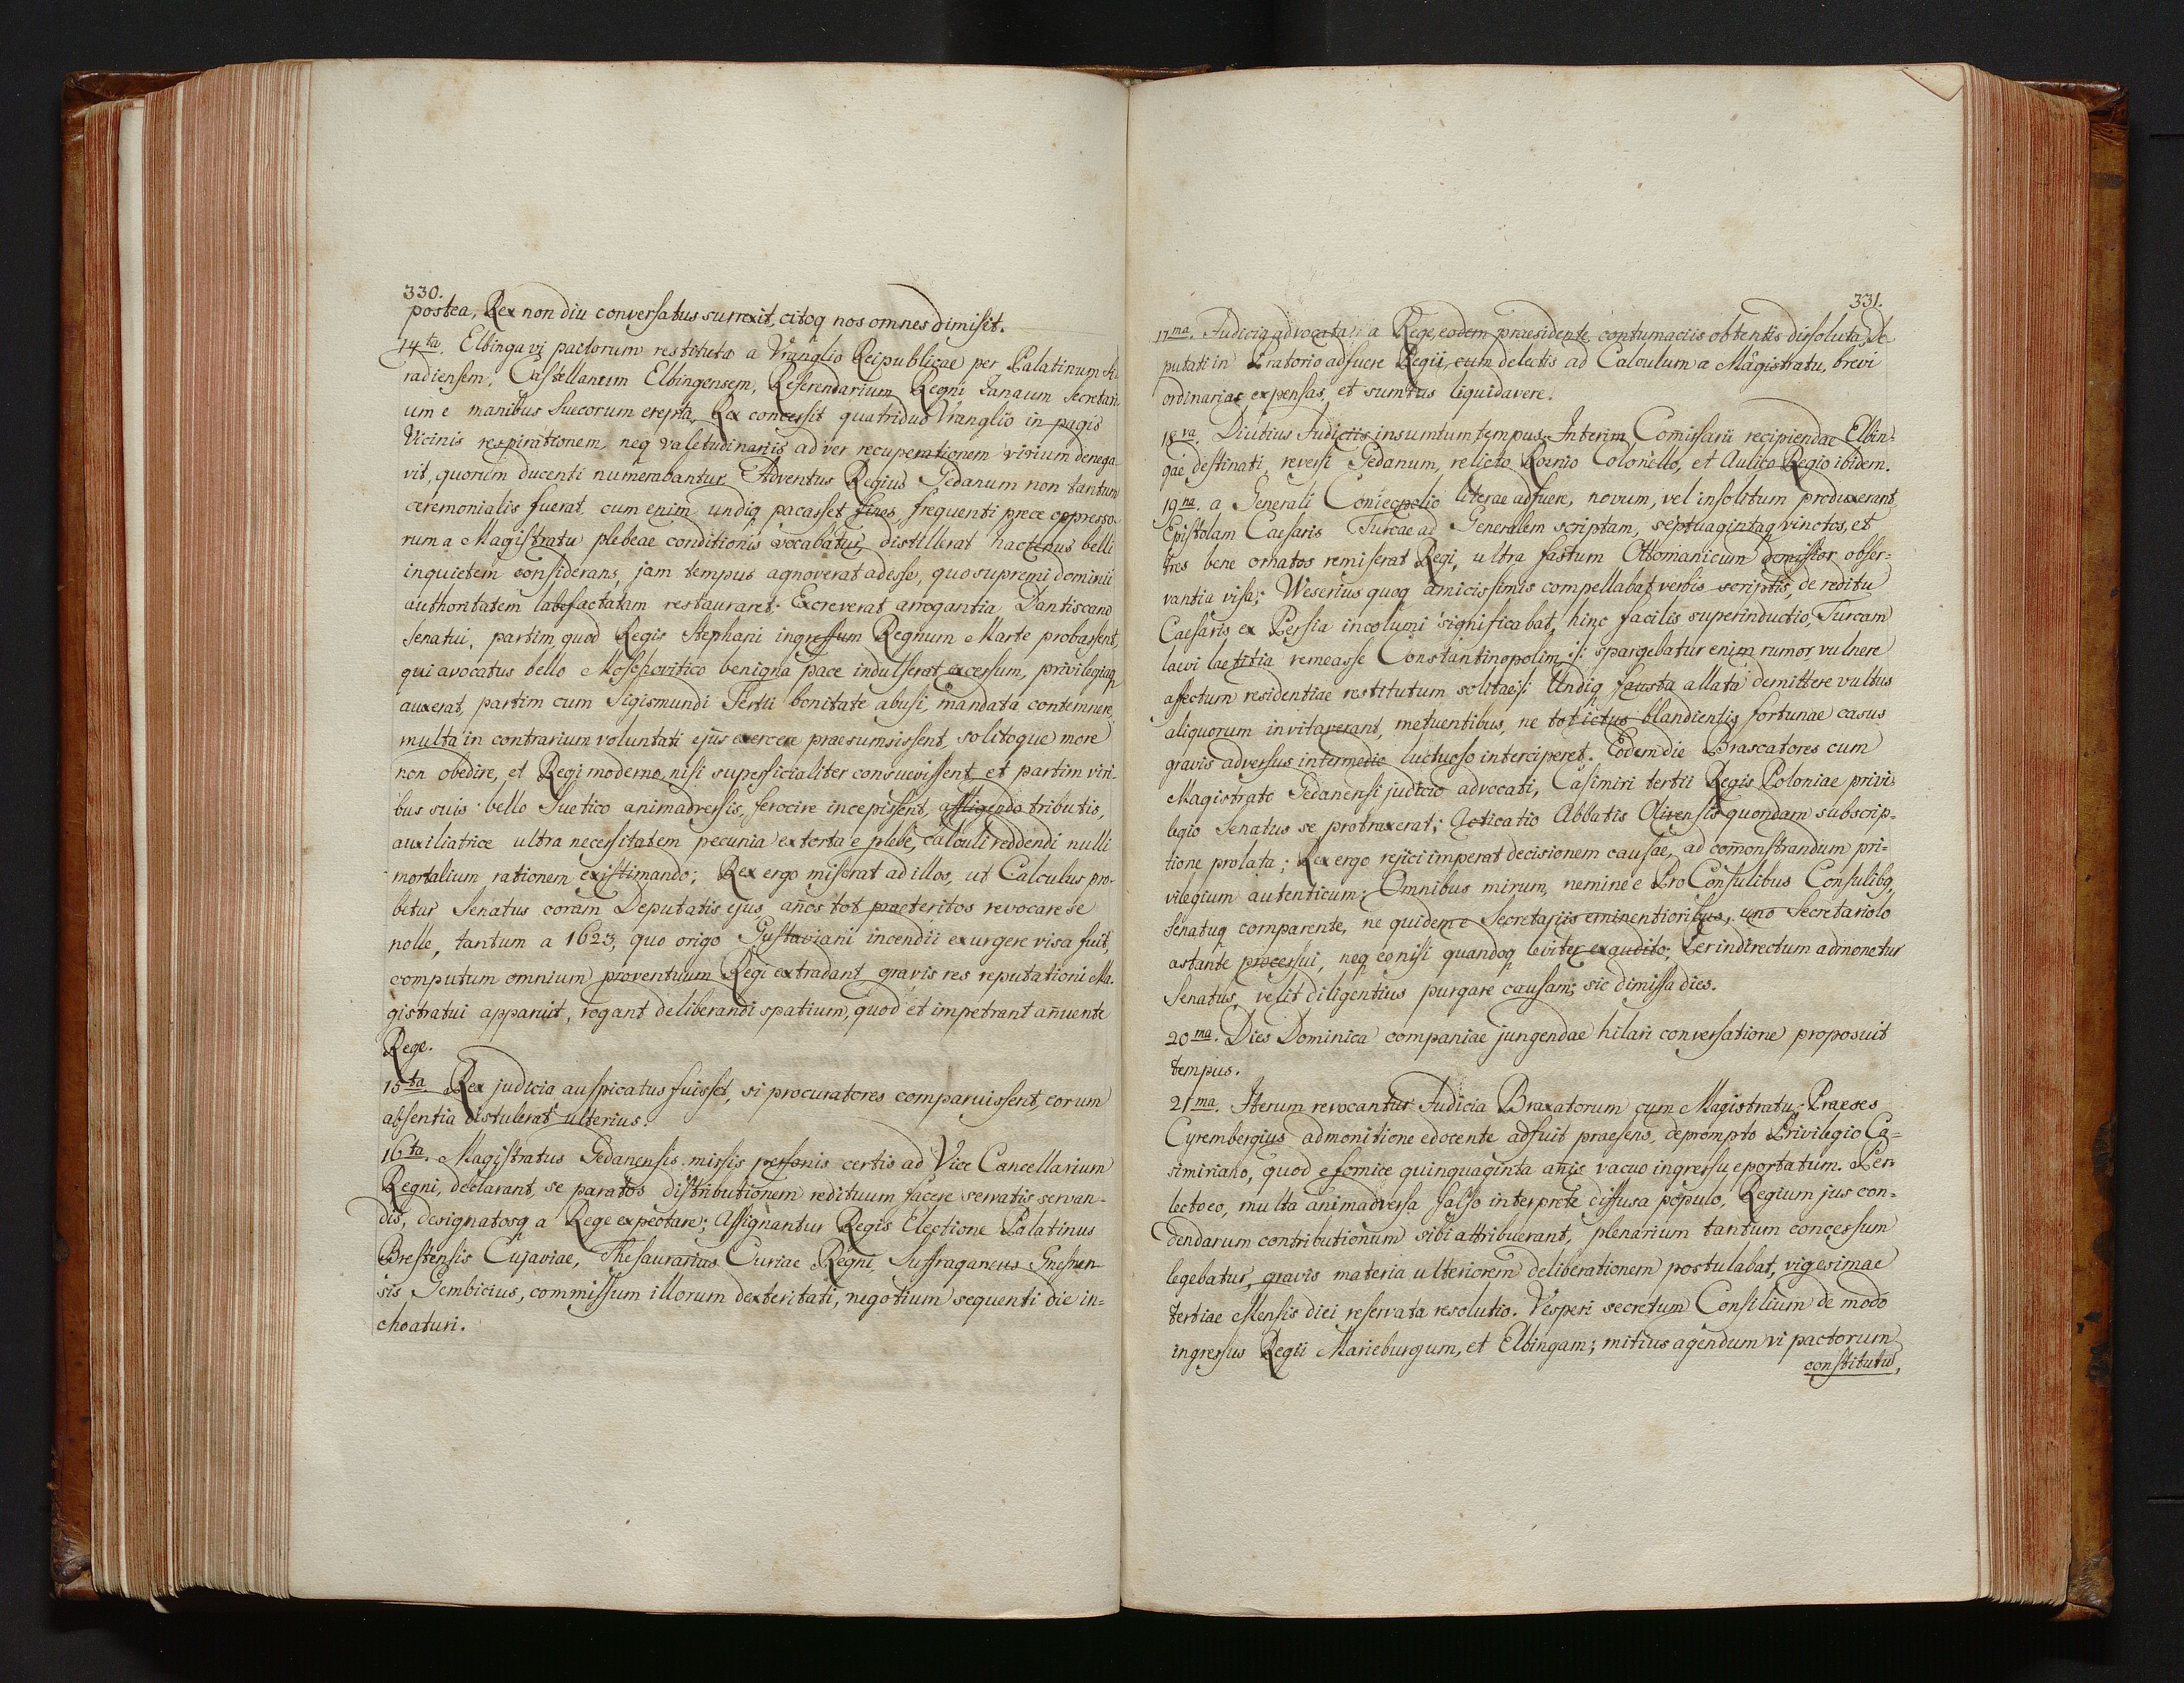 330.
postea, Rex non diu conversatus surrexit, citoq nos omnes dimisit.
14ta. Elbinga vi pactorum restituta a Vranglio Reipublicae per Palatinum Si-
radiensem, Castellanum Elbingensem, Referendarium Regni Janaum Secretari
um e manibus Suecorum erepta, Rex concessit quatriduo Vranglio in pagis
Vicinis respirationem, neq valetudinariis ad ver recuperationem virium denega
vit, quorum ducenti numerabantur. Adventus Regius Gedanum non tantum
ceremonialis fuerat, cum enim undiq pacasset fines, frequenti prece oppresso-
rum a Magistratu plebeae conditionis vocabatur, distillerat hactenus belli
inquietem considerans, jam tempus agnoverat adesse, quo supremi dominii
authoritatem labefactatam restauraret. Excreverat arrogantia Dantiscano
Senatui, partim, quod Regis Stephani ingressum Regnum Marte probassent,
qui avocatus bello Moschovitico benigna pace indulserat excessum, privilegiaq
auxerat, partim cum Sigismundi Tertii bonitate abusi, mandata contemnere,
multa in contrarium voluntati ejus exercere praesumsissent, solitoque more
non obedire, et Regi moderno, nisi superficialiter consuevissent, et partim viri-
bus suis bello Suetico animadversis, ferocire incepissent, affligendo tributis,
auxiliatrice ultra necessitatem pecunia extorta e plebe, calculi reddendi nulli
mortalium rationem existimando; Rex ergo miserat ad illos, ut Calculus pro-
betur Senatus coram Deputatis ejus, años tot praeteritos revocare se
nolle, tantum a 1623, quo origo Gustaviani incendii exurgere visa fuit,
computum omnium proventuum Regi extradant, gravis res reputationi Ma-
gistratui apparuit, rogant deliberandi spatium, quod et impetrant añuente
Rege.
15ta. Rex judicia auspicatus fuisset, si procuratores comparuissent, eorum
absentia distulerat ulterius.
16ta. Magistratus Gedanensis missis personis certis ad Vice Cancellarium
Regni, declarant, se paratos distributionem redituum facere servatis servan-
dis, designatosq a Rege expectare; Assignantur Regis Electione Palatinus
Brestensis Cujaviae, Thesaurarius Curiae Regni, Suffraganeus Gnesnen
sis Gembicius, commissum illorum dexteritati, negotium sequenti die in=
choaturi.
331.
17ma. Judicia advocata a Rege, eodem praesidente contumaciis obtentis dissoluta, De
putati in Praetorio adfuere Regii, cum delectis ad Calculum a Magistratu, brevi
ordinarias expensas, et sumtus liquidavere.
18va. Diutius Judiciis insumtum tempus. Interim Comissarii recipiendae Elbin-
gae destinati, reversi Gedanum, relicto Colonello, et Aulico Regio ibidem.
19na. a Generali Coniecpolio literae adfuere, novum, vel insolitum produxerant,
Epistolam Caesaris Turcae ad Generalem scriptam, septuagintaq vinctos, et
tres bene ornatos remiserat Regi, ultra fastum Ottomanicum demissior obser-
vantia visa; Weserius quoq amicissimis compellabat verbis scriptis, de reditu
Caesaris ex Persia incolumi significabat, hinc facilis superinductio, Turcam
laevi laetitia remeasse Constantinopolim /: spargebatur enim rumor vulnere
affectum residentiae restitutum solitae :/ Undiq fausta allata demittere vultus
aliquorum invitaverant, metuentibus, ne tot ictus blandientis fortunae casus
gravis adversus intermedio luctuoso interciperet. Eodem die Brascatores cum
Magistrato Gedanensi judicio advocati, Casimiri tertii Regis Poloniae privi-
legio Senatus se protraxerat; Acticatio Abbatis Olivensis quondam subscrip-
tione prolata; Rex ergo rejici imperat decisionem causae, ad comonstrandum pri-
vilegium autenticum; Omnibus mirum, nemine e Pro Consulibus Consulibq
Senatuq comparente, ne quidem e Secretariis eminentioribus, uno Secretariolo
astante processui, neq eo nisi quandoq leviter exaudito; Per indirectum admonetur
Senatus, velit diligentius purgare causam; sic dimissa dies.
20ma. Dies Dominica companiae jungendae hilari conversatione proposuit
tempus.
21ma. Iterum revocantur Judicia Braxatorum cum Magistratu; Praeses
Cyrembergius admonitione edocente adfuit praesens, deprompto Privilegio Ca=
simiriano, quod e fornice quinquaginta añis vacuo ingressu eportatum. Per-
lecto eo, multa animadversa falso interprete diffusa populo, Regium jus con-
dendarum contributionum sibi attribuerant, plenarium tantum concessum
legebatur, gravis materia ulteriorem deliberationem postulabat, vigesimae
tertiae Mensis diei reservata resolutio. Vesperi secretum Consilium de modo
ingressus Regii Marieburgum, et Elbingam; mitius agendum vi pactorum
constitutu,